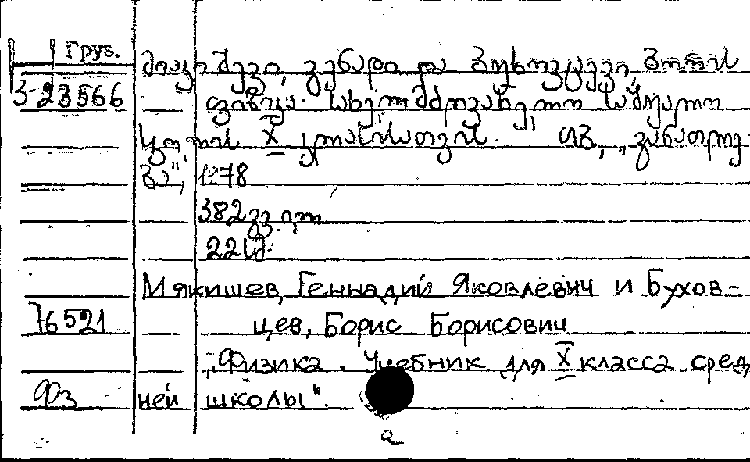 Груз.
მიაკიშევი, გენადი და ბუხოვცევი, ბორის
3-23566 ფიზიკა. სახელმძღვანელო საშუალო
სკოლის X კლასისათვის. თბ, „განათლე
ბა", 1978
382 გვ.
Мякишев, Геннадий Яковлевич и Бухов-
76521 цев, Борис Борисович
„Физика. Учебник для X класса сред
ней школы".